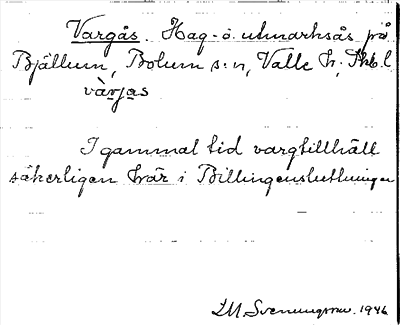 Vargås. Hag- o. utmarksås på
Bjällum, Bolum s:n, Valle h, Skb.l
vàrjas
I gammal tid vargtillhåll
säkerligen här i Billingensluttningen
1946